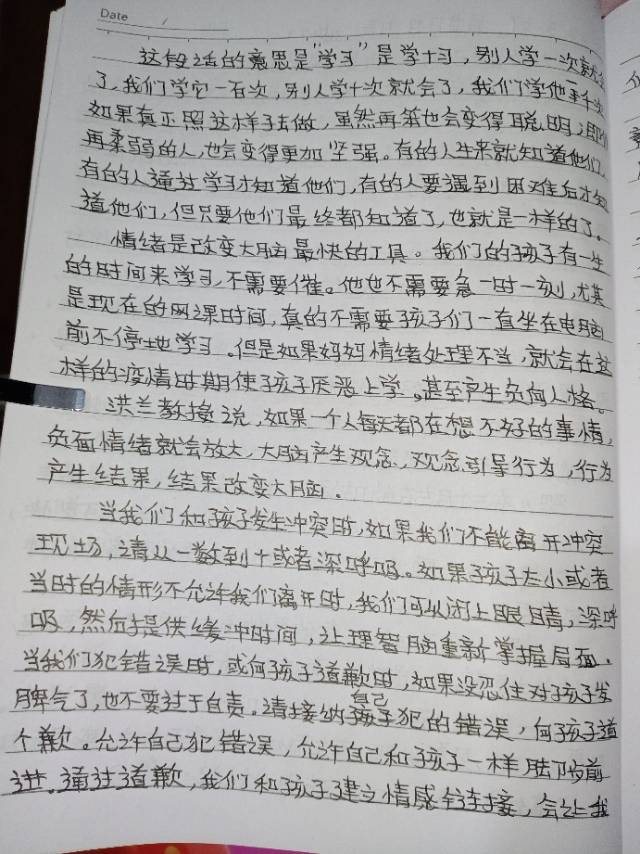 Date
这段话的意思是"学习"是学十习，别人学一次就会
了，我们学它一百次，别人学十次就会了，我们学他千次
如果真正照这样子去做，虽然再笨也会变得聪明；即
再柔弱的人，也会变得更加坚强。有的人生来就知道他们，
有的人通过学习才知道他们，有的人要遇到困难后才知
道他们，但只要他们最终都知道了，也就是一样的了。
情绪是改变大脑最快的工具。我们的孩子有一生
的时间来学习，不需要催。他也不需要急一时一刻，尤其
是现在的网课时间，真的不需要孩子们一直坐在电脑
前不停地学习。但是如果妈妈情绪处理不当，就会在这
样的疫情时期使孩子厌恶上学。甚至产生负向人格。
洪兰教授说，如果一个人每天都在想不好的事情，
负面情绪就会放大，大脑产生观念，观念引导行为，行为
产生结果，结果改变大脑．
当我们和孩子发生冲突时，如果我们不能离开冲突
现场，请从一数到十或者深呼吸。如果孩子太小或者
当时的情形不允许我们离开时，我们可以闭上眼睛，深呼
吸，然后提供缓冲时间，让理智脑重新掌握局面．
当我们犯错误时，或向孩子道歉时，如果没忍住对孩子发
脾气了，也不要过于自责。请接纳自己犯的错误，向孩子道
个歉。允许自己犯错误，允许自己和孩子一样
进．通过道歉，我们和孩子建立情感链接，会让我